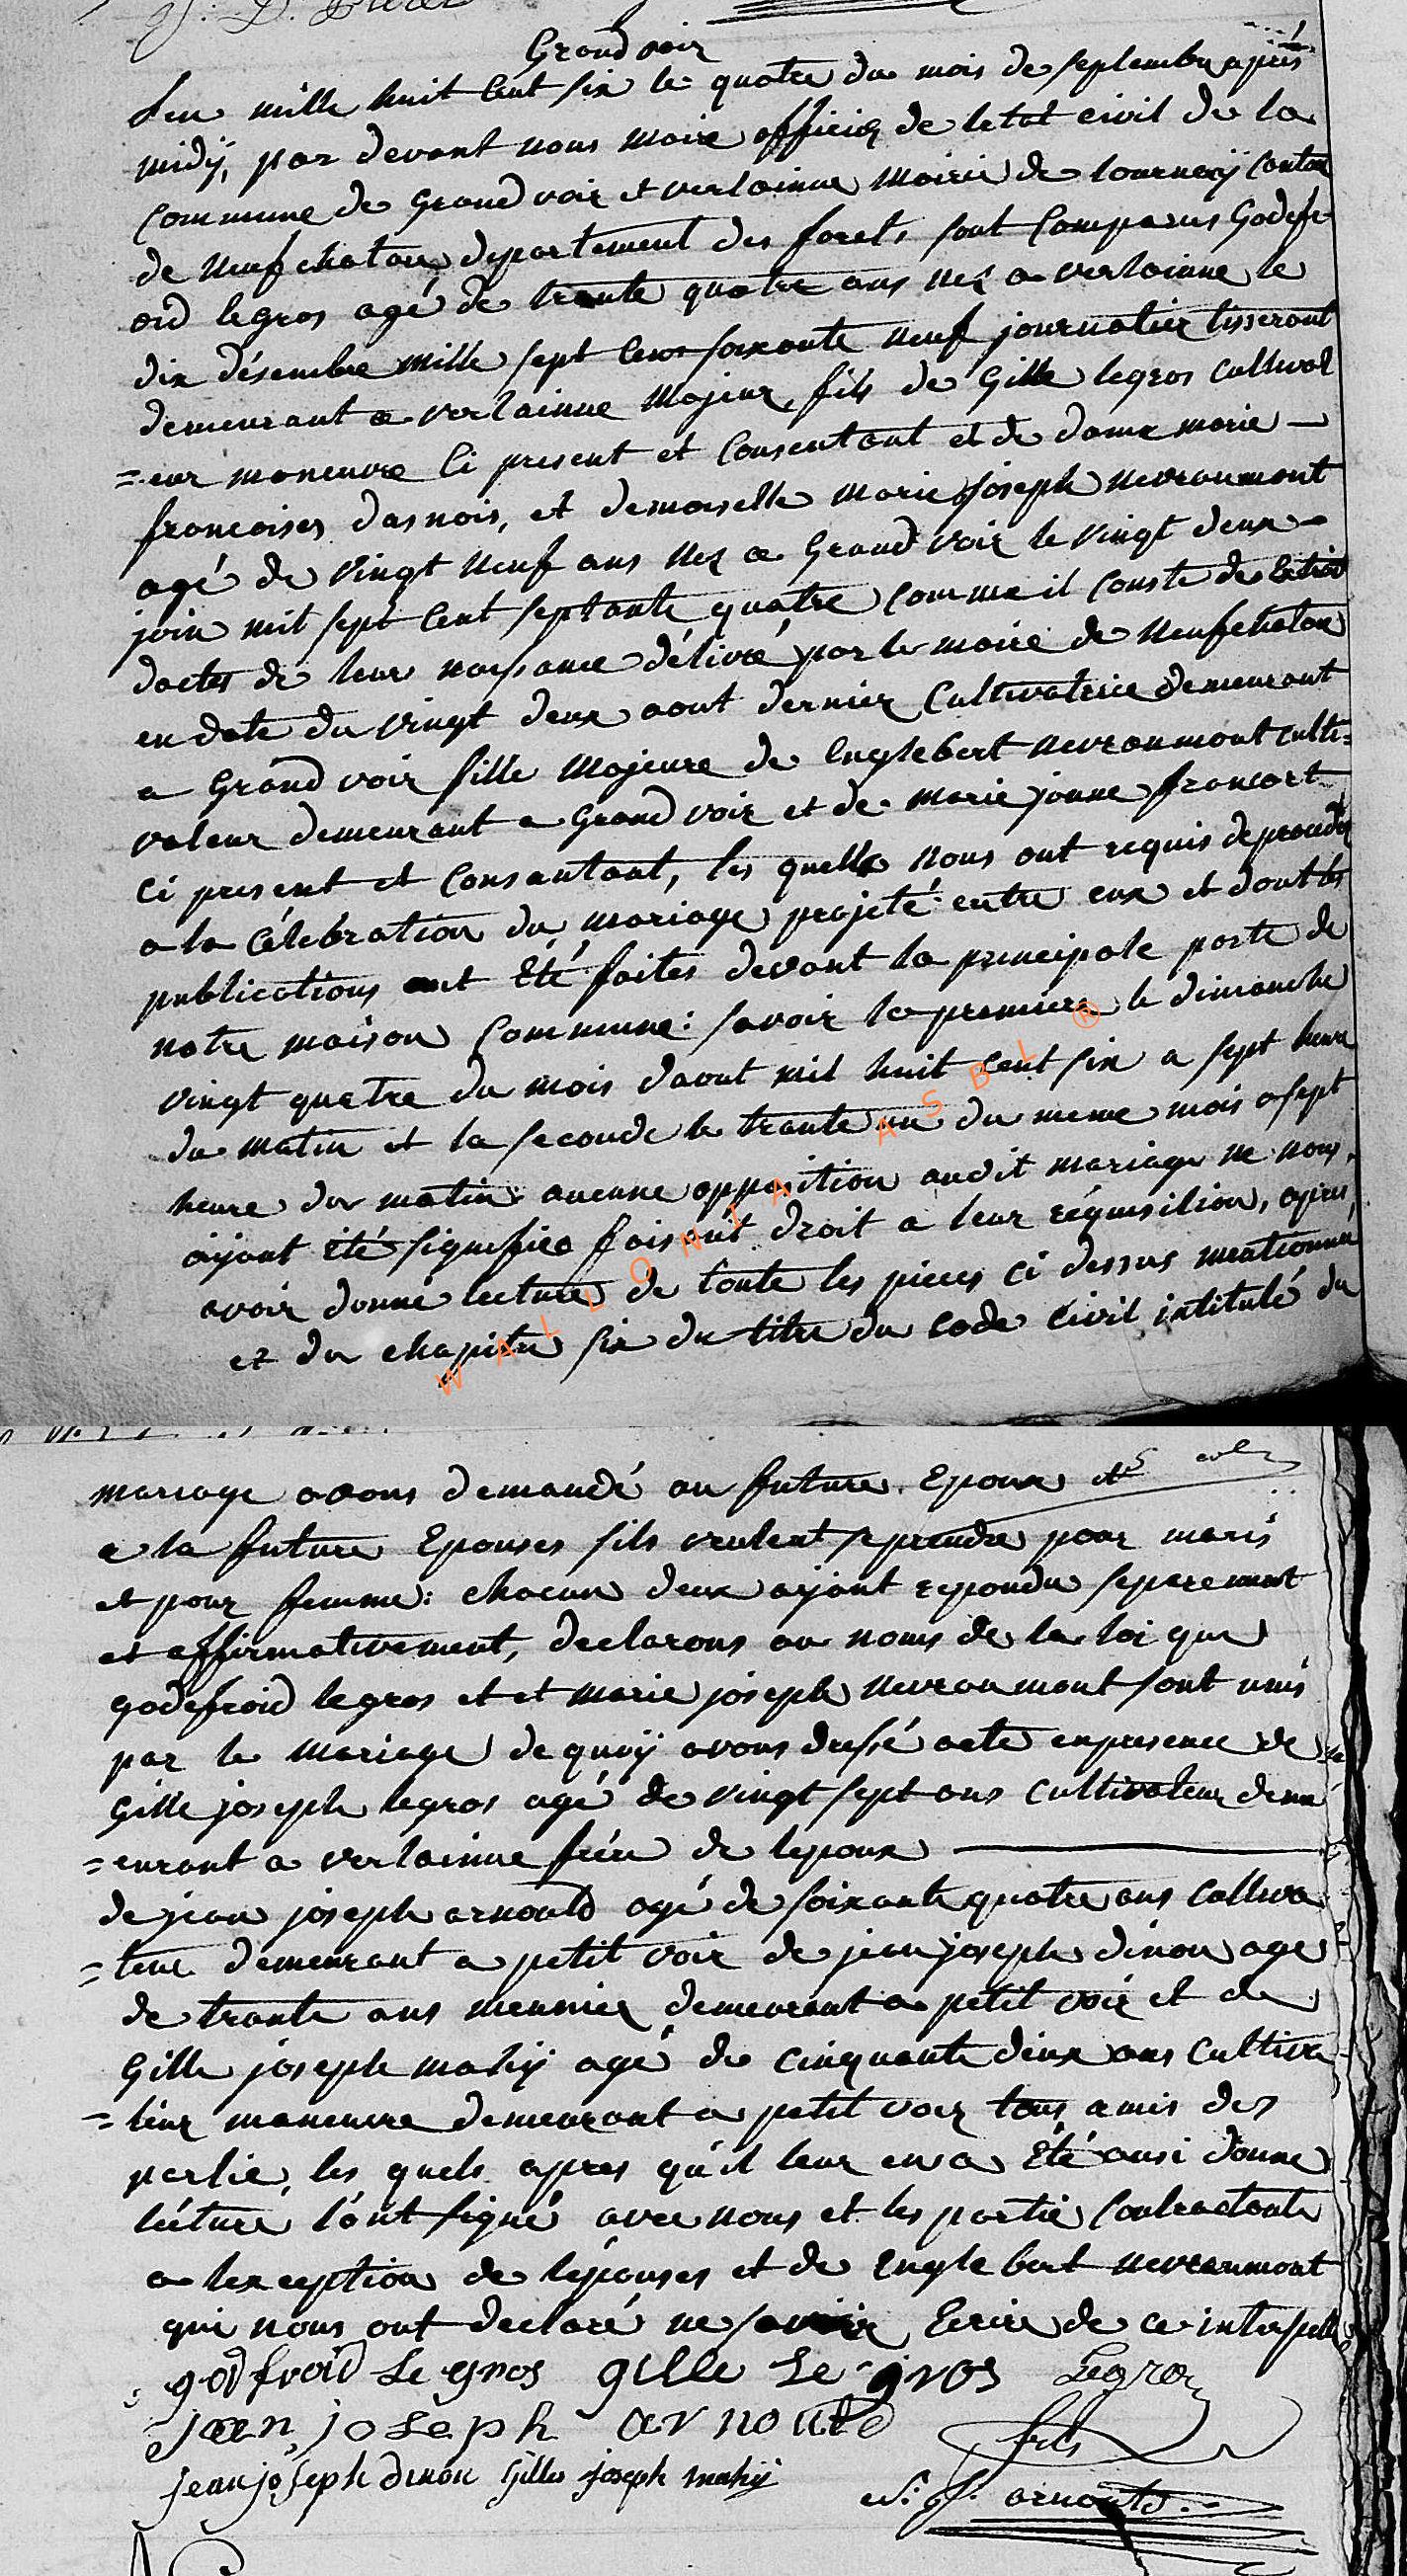 Grandvoir
Lan mille huit Cent six le quatre du mois de septembre apres
midÿ, par devant nous maire officier de letat civil de la
Commune de Grandvoir et verlainne Mairie de tournaÿ Canton
de neufchatau departement des forets sont Comparus Godefr
oid legros agé de trante quatre ans nez a verlainne le
dix désembre mille sept Cens soixante neuf journalier tisserant
demeurant a verlainne Majeur, fils de Gille legros Cultivat
=eur maneuvre Ci present et Consentant et de dame marie —
francoises dasnois, et demoiselle marie joseph nevraumont
agé de vingt neuf ans nez a Grand voir le vingt deux
join mil sept Cent septante quatre comme il conste des lextrait
dactes de leur naissance délivré par le maire de neufchatau
en date du vingt deux aout dernier Cultivatrice demeurant
a Grand voir fille Majeure de Englebert nevraumont culti=
vateur demeurant a Grand voir et de marie janne francart
ci present et Consantant, les quelle nous ont requis de proceder
a la Célébration du mariage projeté entre eux et dont les
publications ont Eté faites devant la principale porte de
notre maison Commune: savoir la premiere le dimanche
vingt quatre du mois daout mil huit cent six a sept heure
du matin et la seconde le trante un du meme mois a sept
heure du matin aucune opposition audit mariage ne nous
aÿant Eté signifiée faisant droit a leur réquisition, apres
avoir donné lecture de toute les pieces Ci dessus mentionnée
et du chapitre six du titre du Code Civil intitulé du
mariage avons demandé au future Epoux et
a la future Epouses sils veulent se prendre pour maris
et pour femme: chacun deux aÿant repondu separement
et affirmativement, declarons au noms de la loi que
godefroid legros et et marie joseph nevraumont sont unis
par le mariage de quoÿ avons dressé acte en presence de
Gille joseph legros agé de vingt sept ans Cultivateur dem
=eurant a verlainne frére de lepoux
de jean joseph arnould agé de soixante quatre ans Cultiva
=teur demeurant a petit voir de jean joseph dinon age
de trante ans meunier demeurant a petit voir et de
Gille joseph mahÿ agé de Cinquante deux ans Cultiva
=teur maneuvre demeurant a petit voir tous amis des
partie, les quels apres qu'il leur en a Eté ausi donne
lécture l'ont signé avec nous et les partie Contractante
a lexception de lépouses et de Englebert nevraumont
qui nous ont declaré ne savoir Ecrire de ce interpellé
godfroid Le gros gille Le gros Legros
fils
jean joseph arnould
jean joseph dinon Gilles joseph mahÿ
arnould
WALLONIA ASBL ®